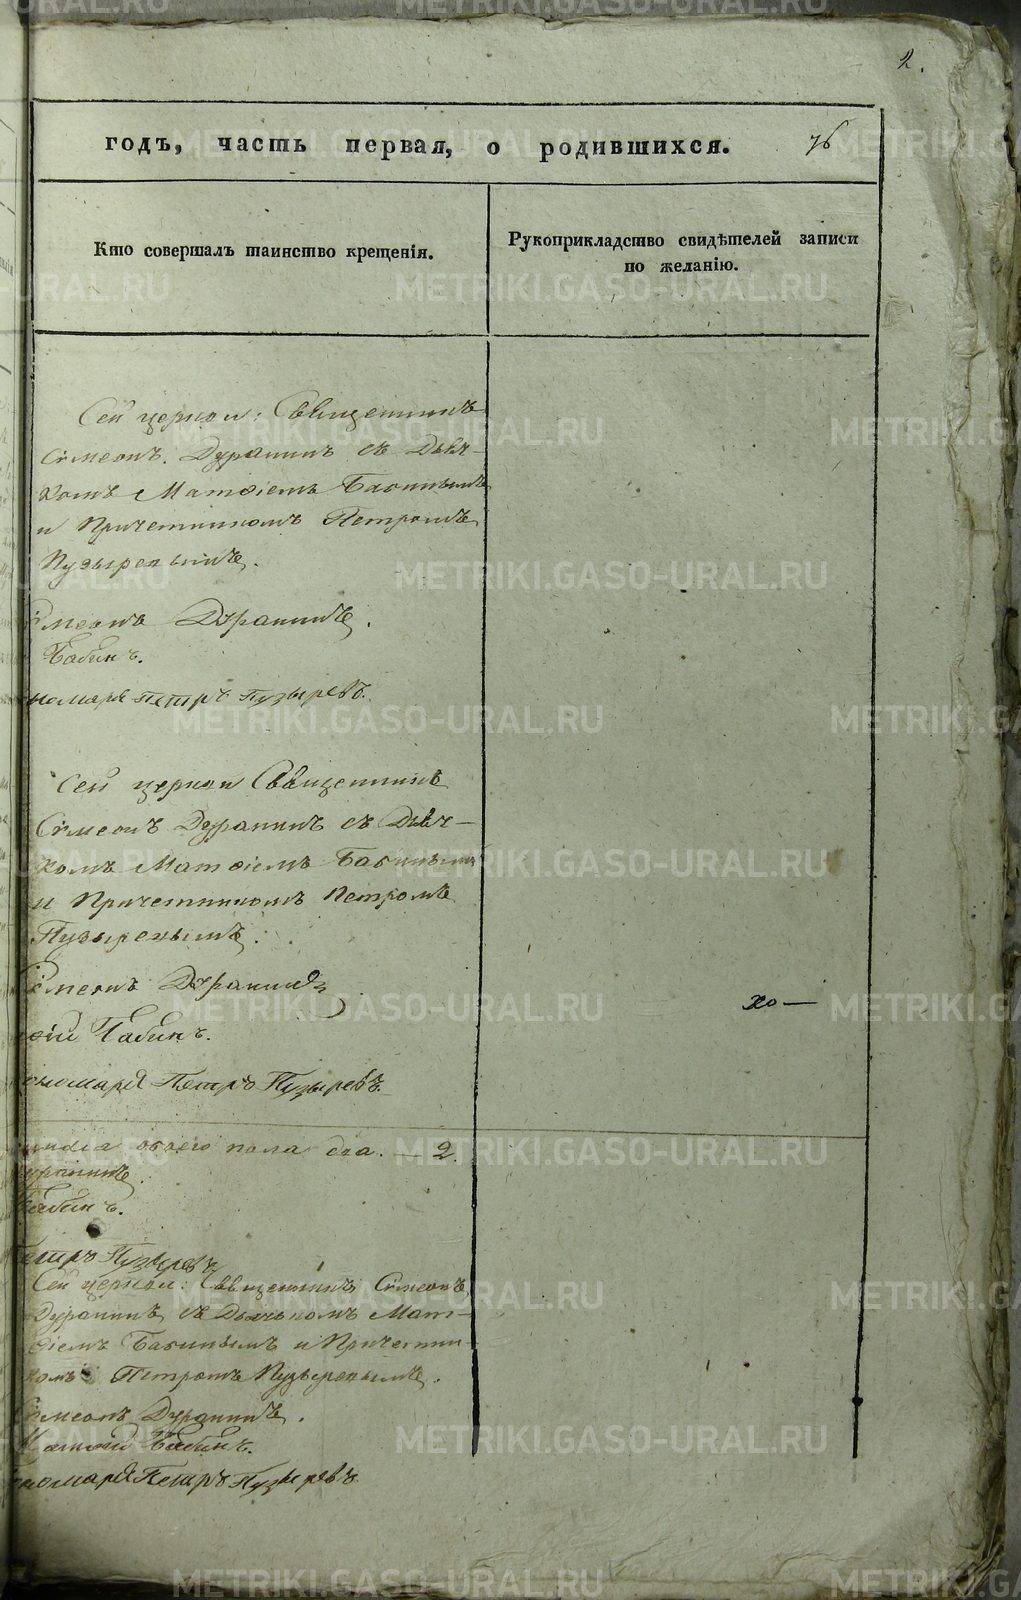 2.
годъ, часть первая, о родившихся. 76
Кто совершалъ таинство крещенія.
Рукоприкладство свидѣтелей записи
по желанію.
Сей церкви: Священникъ
Сѵмеонъ Дуранинъ съ Дьяч-
комъ Матѳіемъ Бабинымъ
и Причетникомъ Петромъ
Пузыревымъ.
Сѵмеонъ Дуранинъ.
Бабинъ.
номарь Петръ Пузыревъ.
Сей церкви Священникъ
Сѵмеонъ Дуранинъ съ Дьяч-
комъ Матѳіемъ Бабинымъ
и Причетникомъ Петромъ
Пузыревымъ.
Сѵмеонъ Дуранинъ
ѳій Бабинъ.
ономарь Петръ Пузыревъ
обоего пола два. — 2.
уранинъ.
Бабинъ.
Петръ Пузыревъ
Сей церкви: Священникъ Сѵмеонъ
Дуранинъ съ Дьячькомъ Мат-
ѳіемъ Бабинымъ и Причетни-
комъ Петромъ Пузыревымъ.
Сѵмеонъ Дуранинъ.
Матѳій Бабинъ.
ономарь Петръ Пузыревъ
METRIKI.GASO-URAL.RU